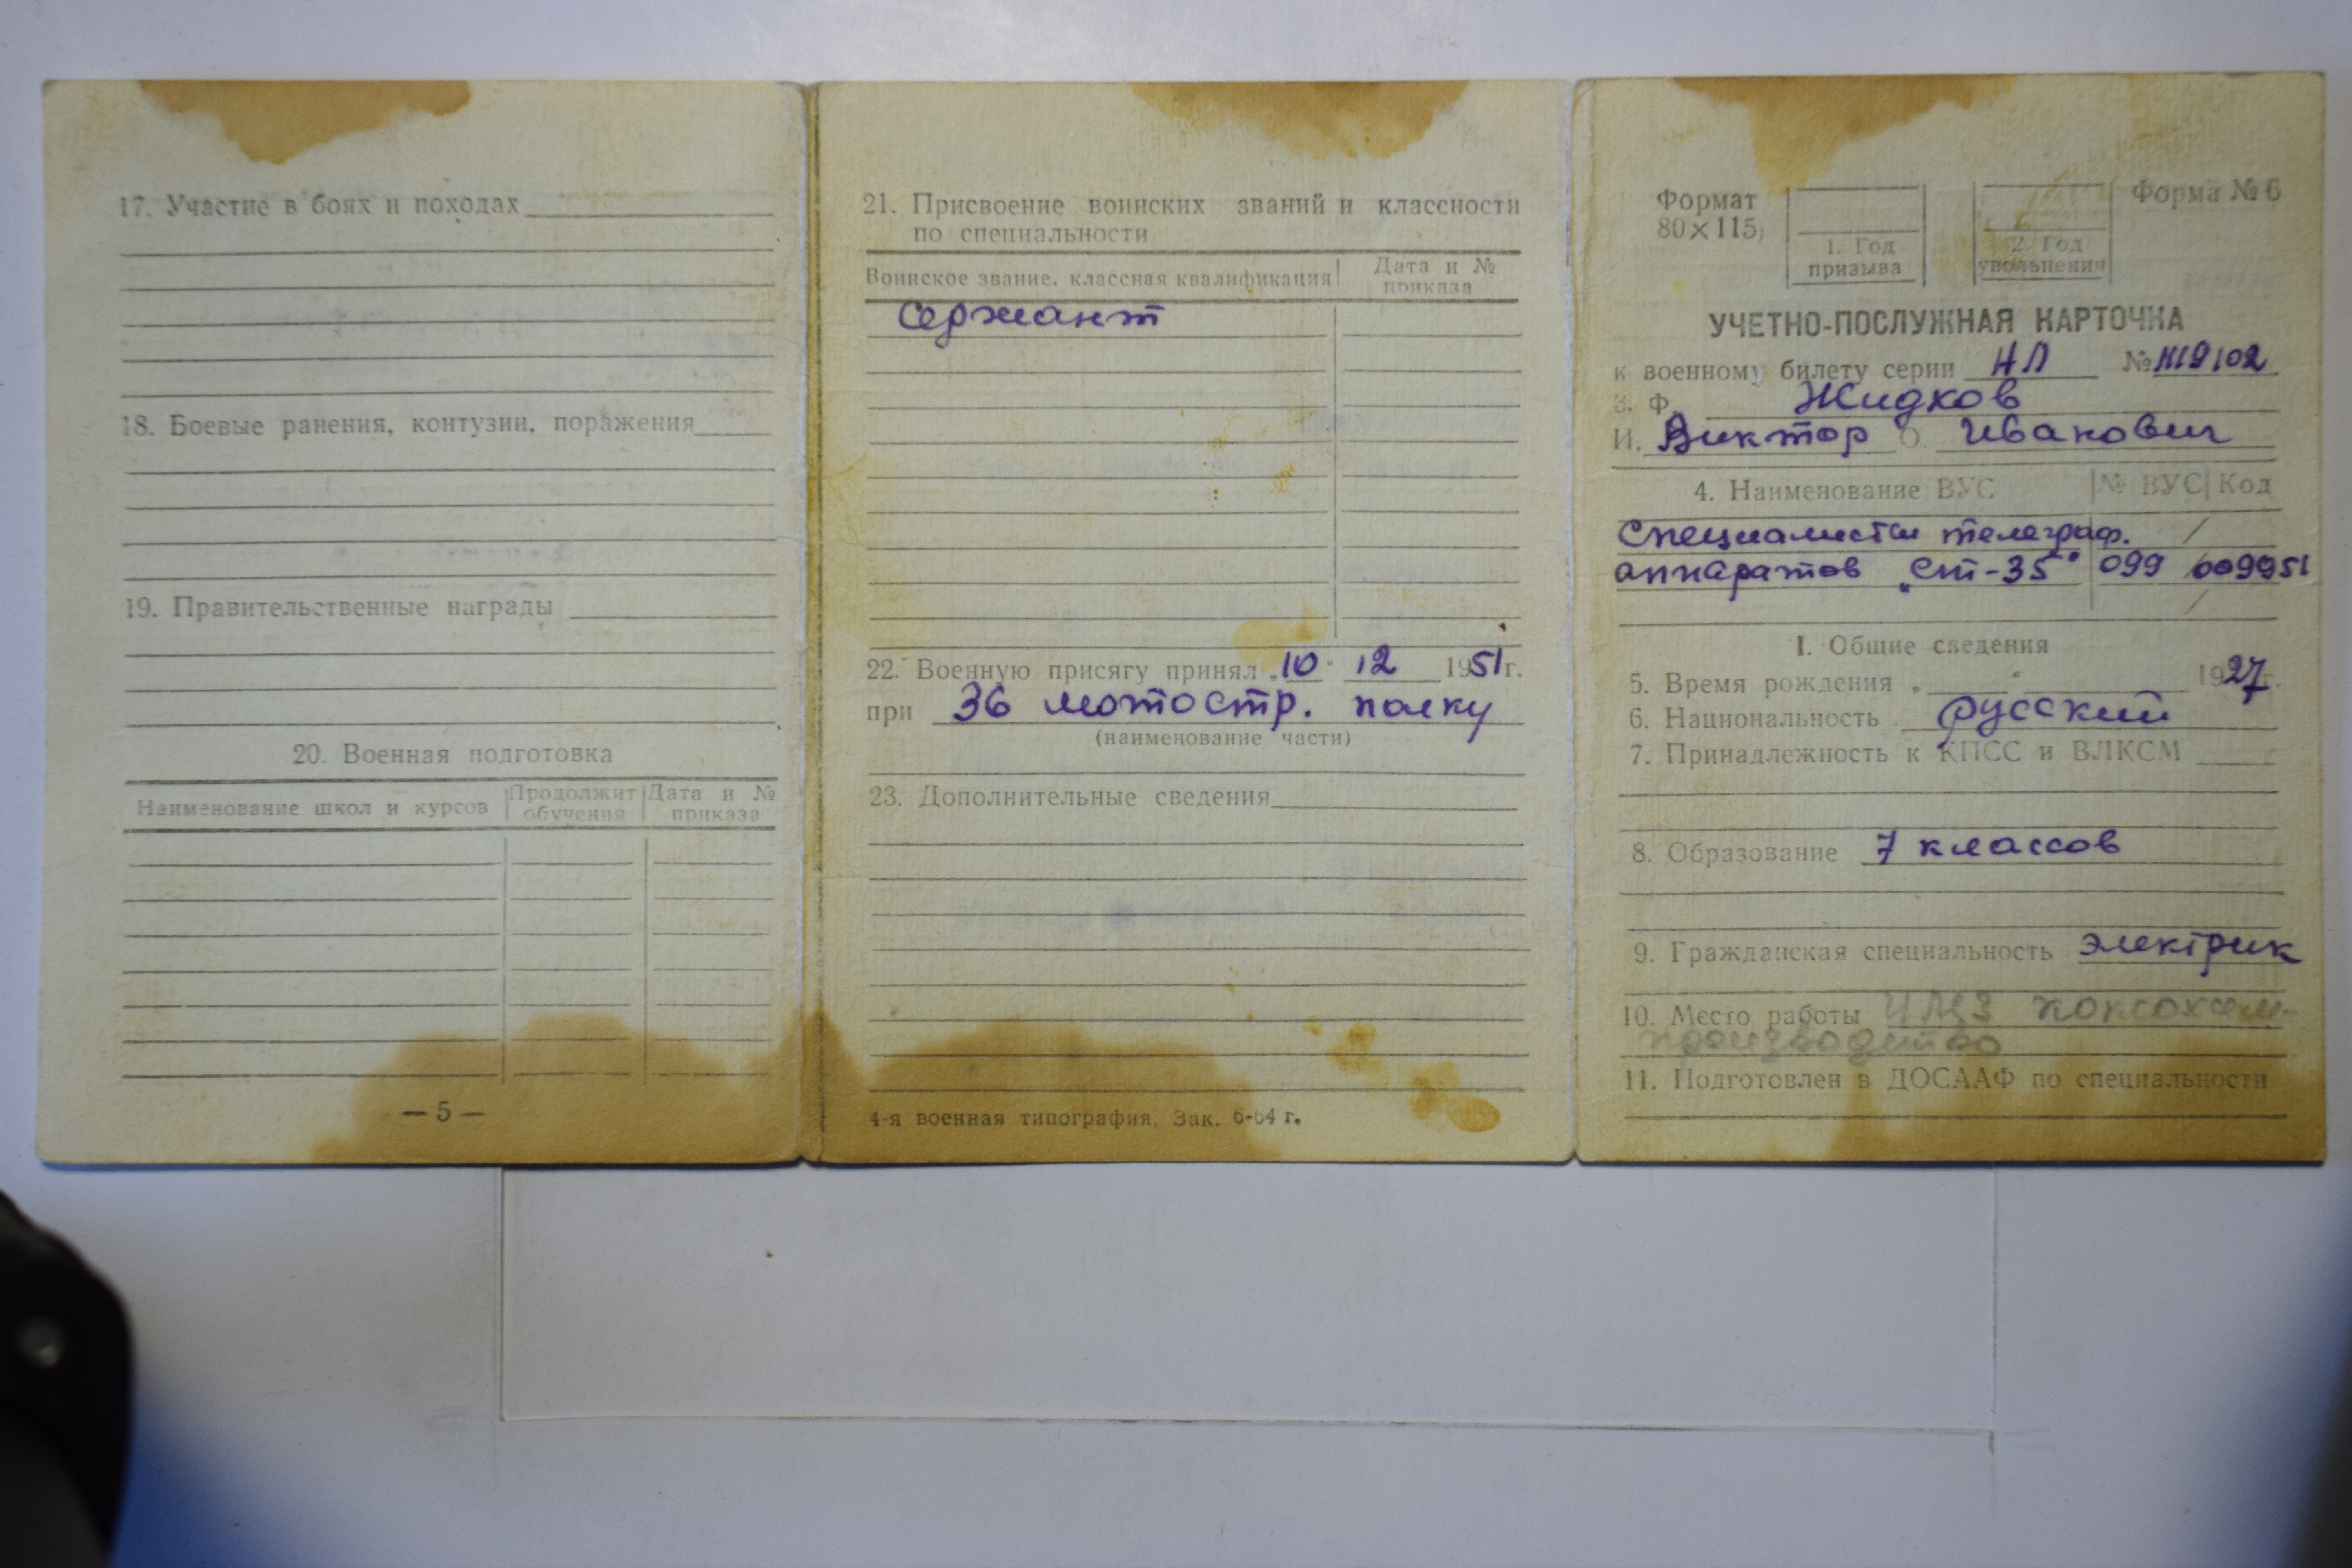 17. Участие в боях и походах
18. Боевые ранения, контузии, поражения
19. Правительственные награды
20. Военная подготовка
Наименование школ и курсов
Продолжит обучения
Дата и № приказа
— 5 —
21. Присвоение воинских званий и классности
по специальности
Воинское звание, классная квалификация
Дата и № приказа
Сержант
22. Военную присягу принял „10" 12 1951 г.
при 36 мотостр. полку
(наименование части)
23. Дополнительные сведения
4-я военная типография, Зак. 6-64 г.
Формат
80×115
1. Год
призыва
2. Год
увольнения
Форма № 6
УЧЕТНО-ПОСЛУЖНАЯ КАРТОЧКА
к военному билету серии НЛ №
3. Ф. Жидков
И. Виктор О. Иванович
4. Наименование ВУС № ВУС Код
Специалисты телеграф. /
аппаратов „Ст-35" 099 /009951
/
I. Общие сведения
5. Время рождения „ " 1927 г.
6. Национальность русский
7. Принадлежность к КПСС и ВЛКСМ
8. Образование 7 классов
9. Гражданская специальность электрик
10. Место работы коксохим-
производство
11. Подготовлен в ДОСААФ по специальности